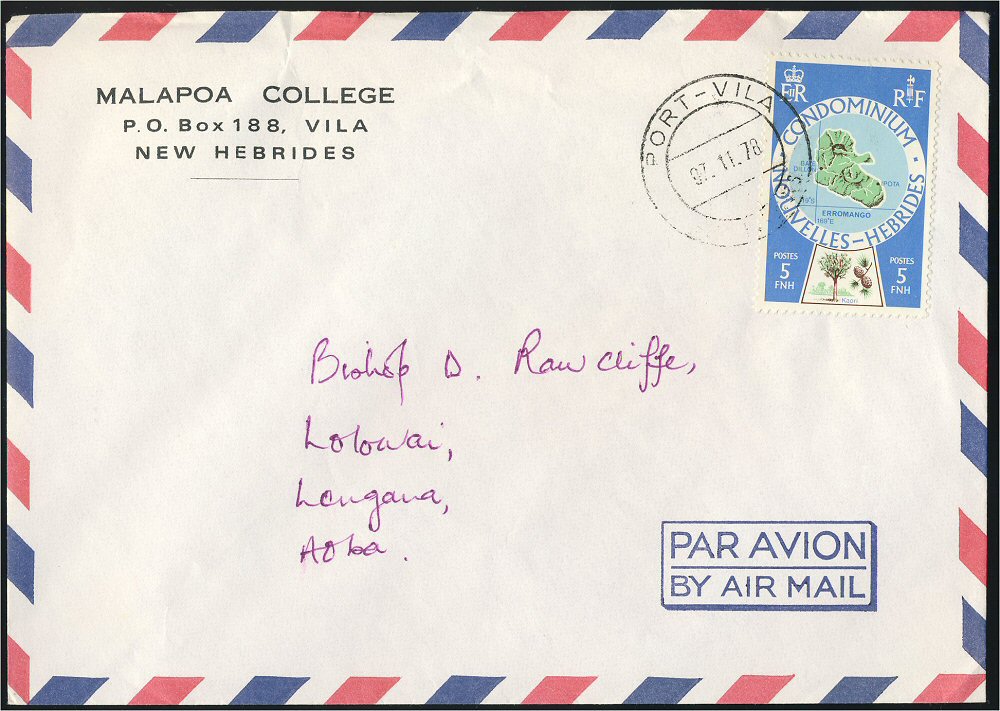 MALAPOA COLLEGE
P.O. Box 188, VILA
NEW HEBRIDES
PORT-VILA
97.11.78
EIIR
RF
CONDOMINIUM
NOUVELLES-HEBRIDES
DILLON
IPOTA
19°S
ERROMANGO
169°E
POSTES
5
FNH
Kaori
POSTES
5
FNH
Bishop D. Rawcliffe,
Lolowai,
Longana,
Aoba.
PAR AVION
BY AIR MAIL